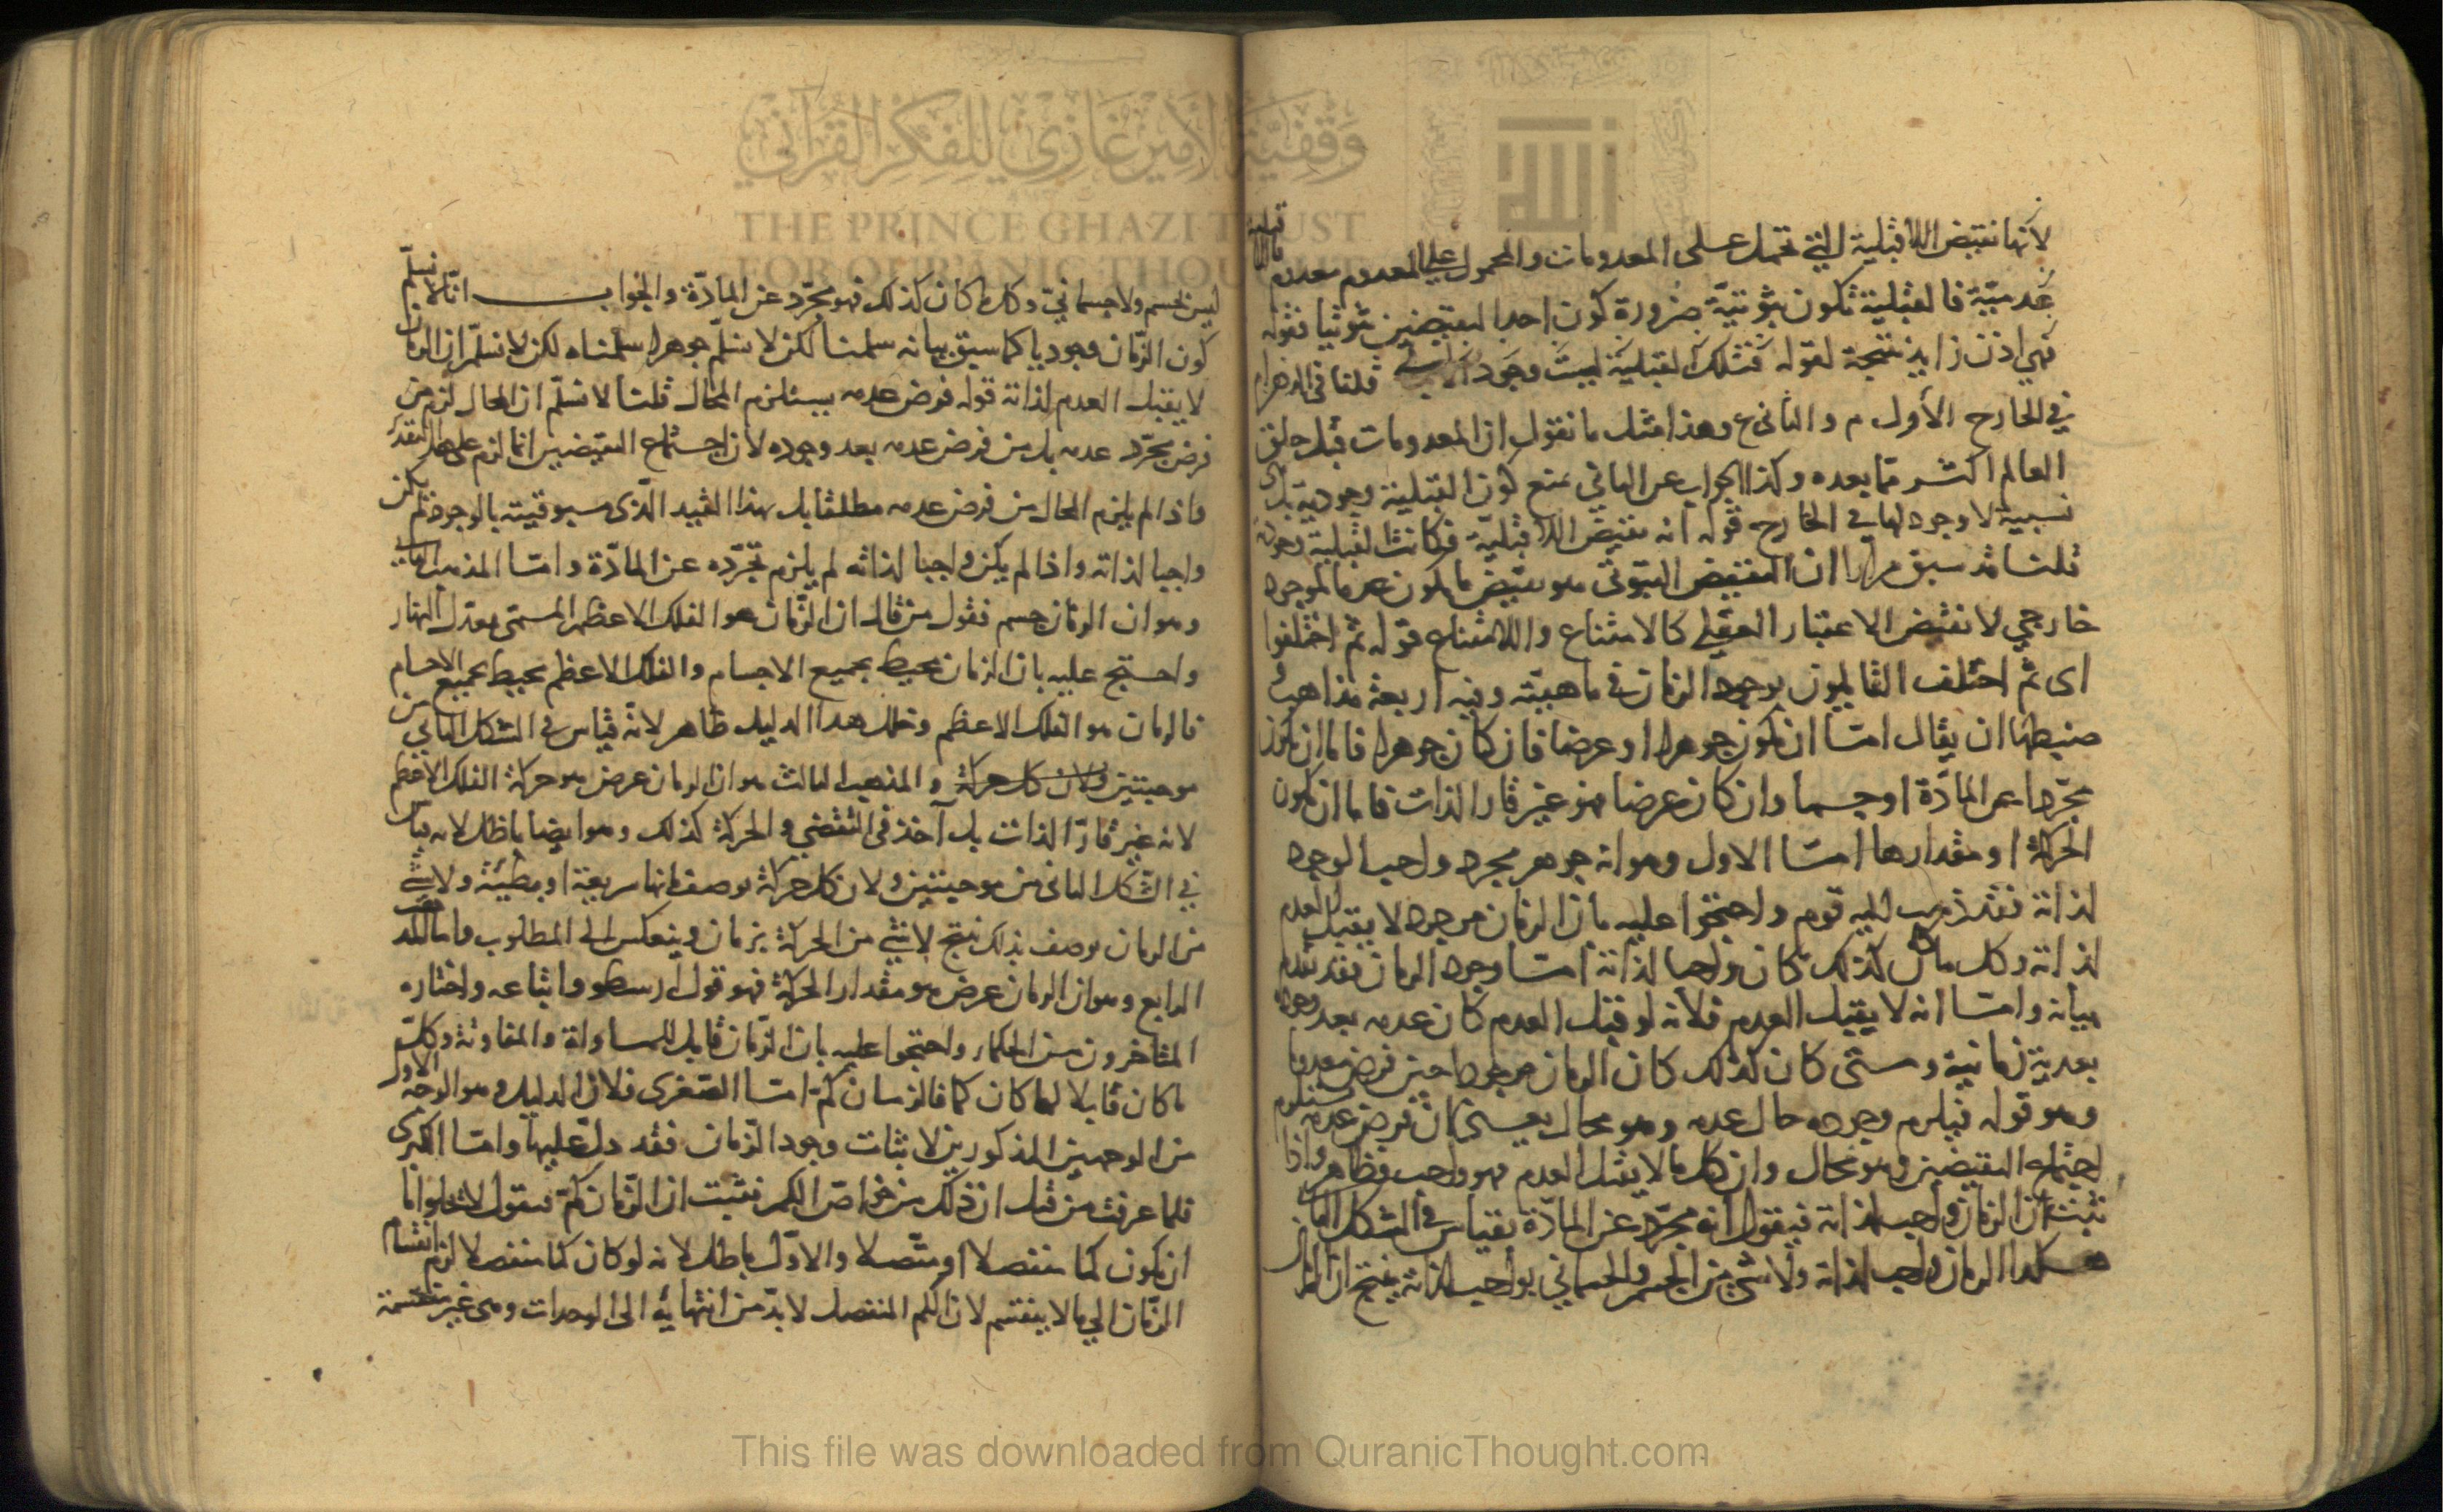 لانها نقيض اللاقبلية التي تحمل على المعدومات والمحمول على المعدوم معدوم فاللاقبلية
عدمية فالقبلية تكون ثبوتية ضرورة كون احد النقيضين ثبوتيا فقوله
فهي اذن زايد نتيجة لقوله فتلك القبلية ليست وجود الاب قلنا في الذهن ام
في الخارج الأول م والثاني ع وهذا مثل ما نقول ان المعدومات قبل خلق
العالم اكثر مما بعده وكذا الجواب عن الثاني نمنع كون القبلية وجودية بل هي
نسبية لا وجود لها في الخارج قوله انه نقيض اللاقبلية فكانت القبلية وجودية
قلنا قد سبق مرارا ان النقيض الثبوتي هو نقيض ما يكون عدما لموجود
خارجي لا نقيض الاعتبار العقلي كالامتناع واللاامتناع قوله ثم اختلفوا
اى ثم اختلف القايلون بوجود الزمان في ماهيته وفيه اربعة مذاهب
ضبطها ان يقال امتا ان يكون جوهرا او عرضا فان كان جوهرا فاما ان يكون
مجردا عن المادة او جسما وان كان عرضا فهو غير قار الذات فاما ان يكون
الحركة او مقدارها امتا الاول وهو انه جوهر مجرد واجب الوجود
لذاته فقد ذهب اليه قوم واحتجوا عليه بان الزمان موجود لا يقبل العدم
لذاته وكل ما كان كذلك كان واجبا لذاته امتا وجود الزمان فقد تقدم
بيانه وامتا انه لا يقبل العدم فلانه لو قبل العدم كان عدمه بعد وجوده
بعدية زمانية ومتى كان كذلك كان الزمان موجودا حين فرض معدوما
وهو قوله فيلزم وجوده حال عدمه وهو محال يعنى كان فرض عدمه يستلزم
اجتماع النقيضين وهو محال وان كل ما لا يقبل العدم فهو واجب فظاهر واذا
ثبت ان الزمان واجب لذاته فيقول انه مجرد عن المادة بقياس في الشكل الثاني
هكذا الزمان واجب لذاته ولا شئ من الجسم والجسماني بواجب لذاته ينتج ان الزمان
ليس بجسم ولا جسماني وكل ما كان كذلك فهو مجرد عن المادة والجواب انا لا نسلم
كون الزمان وجوديا كما سبق بيانه سلمنا لكن لا نسلم جوهرا سلمناه لكن لا نسلم ان الزمان
لا يقبل العدم لذاته قوله فرض عدمه يستلزم المحال قلنا لا نسلم ان المحال لزم من
فرض مجرد عدمه بل من فرض عدمه بعد وجوده لان اجتماع النقيضين انما لزم على هذا التقدير
واذا لم يلزم المحال من فرض عدمه مطلقا بل بهذا القيد الذى مسبوقيته بالوجود لم يكن
واجبا لذاته واذا لم يكن واجبا لذاته لم يلزم تجرده عن المادة وامتا المذهب الثاني
وهو ان الزمان جسم فقول من قال ان الزمان هو الفلك الاعظم المسمى معدل النهار
واحتج عليه بان الزمان محيط بجميع الاجسام والفلك الاعظم محيط بجميع الاجسام
فالزمان هو الفلك الاعظم وخلل هذا الدليل ظاهر لانه قياس في الشكل الثاني من
موجبتين ولان كل حركة والمذهب الثالث هو ان الزمان عرض هو حركة الفلك الاعظم
لانه غير قار الذات بل آخذ في التقضي والحركة كذلك وهو ايضا باطل لانه قياس
في الشكل الثاني من موجبتين ولان كل حركة توصف بانها سريعة او بطيئة ولا شئ
من الزمان يوصف بذلك ينتج لا شئ من الحركة بزمان وينعكس الى المطلوب واما المذهب
الرابع وهو ان الزمان عرض هو مقدار الحركة فهو قول ارسطو واتباعه واختاره
المتاخرون من الحكماء واحتجوا عليه بان الزمان قابل للمساواة والمفاوتة وكل
ما كان قابلا لهما كان كما فالزمان كم امتا الصغرى فلان الدليل وهو الوجه الاول
من الوجهين المذكورين لاثبات وجود الزمان فقد دل عليها وامتا الكبرى
فلما عرفت من قبل ان ذلك من خواص الكم فثبت ان الزمان كم فنقول لا يخلو اما
ان يكون كما منفصلا او متصلا والاول باطل لانه لو كان كما منفصلا لزم انقسام
الزمان الى ما لا ينقسم لان الكم المنفصل لا بد من انتهائه الى الوحدات وهى غير منقسمة
وقفية الأمير غازي للفكر القرآني
THE PRINCE GHAZI TRUST
FOR QUR'ANIC THOUGHT
This file was downloaded from QuranicThought.com